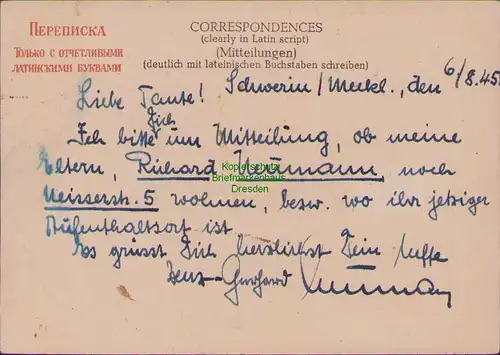 ПЕРЕПИСКА
ТОЛЬКО С ОТЧЕТЛИВЫМИ
ЛАТИНСКИМИ БУКВАМИ
CORRESPONDENCES
(clearly in Latin script)
(Mitteilungen)
(deutlich mit lateinischen Buchstaben schreiben)
Schwerin/Meckl., den 6/8.45
Liebe Tante!
Ich bitte Dich um Mitteilung, ob meine
Eltern, Richard Neumann, noch
Neisserstr. 5 wohnen, bezw. wo ihr jetziger
Aufenthaltsort ist.
Es grüsst Dich herzlichst Dein Neffe
Gerhard Neumann
Kopierschutz
Briefmarkenhaus
Dresden